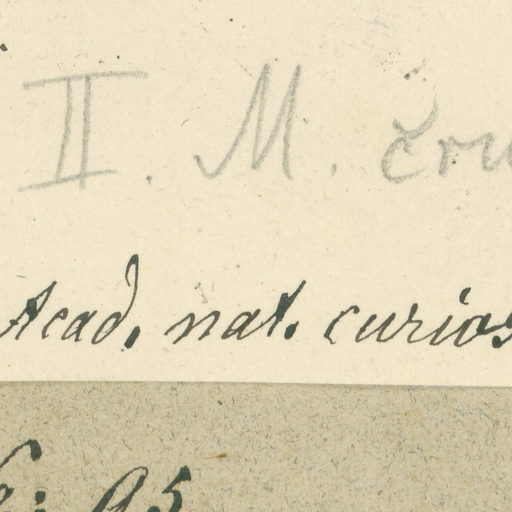 II. M. cru
Acad. nat. curios
95